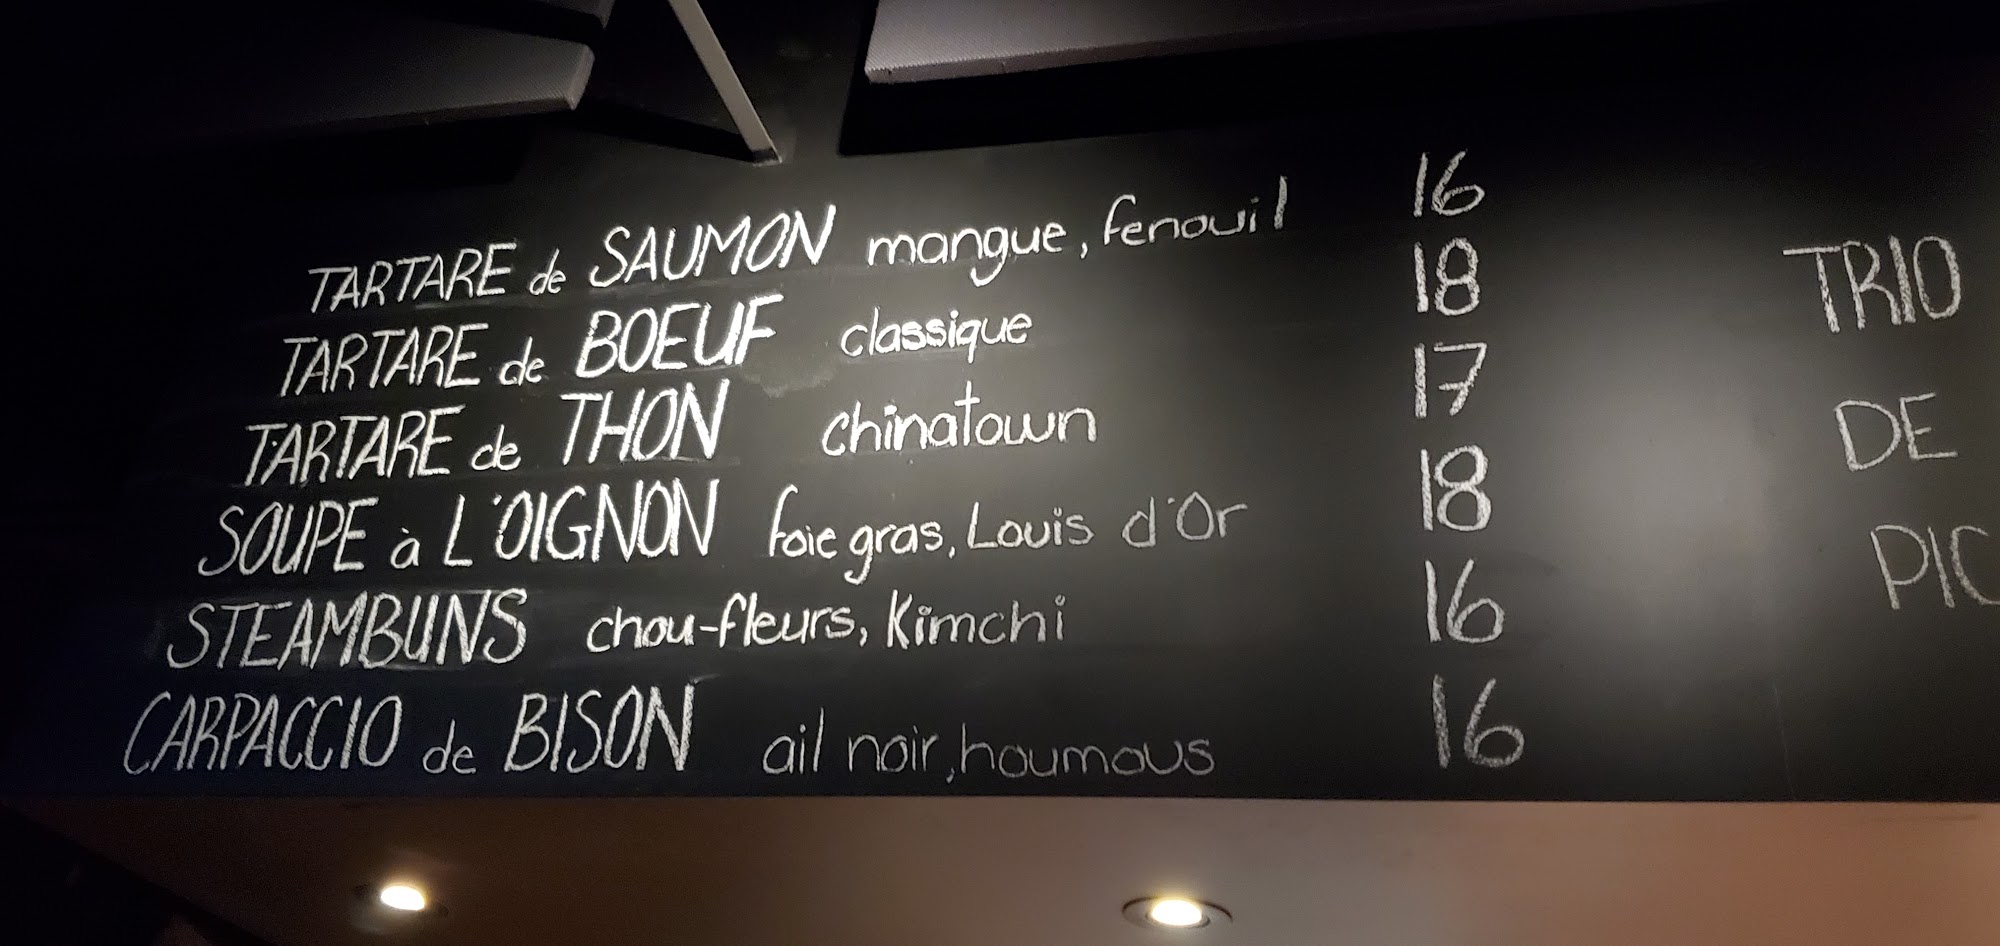 TARTARE de SAUMON mangue, fenouil 16
TARTARE de BOEUF classique 18
TARTARE de THON chinatown 17
SOUPE à L'OIGNON foie gras, Louis d'Or 18
STEAMBUNS chou-fleurs, Kimchi 16
CARPACCIO de BISON ail noir, houmous 16
TRIO
DE